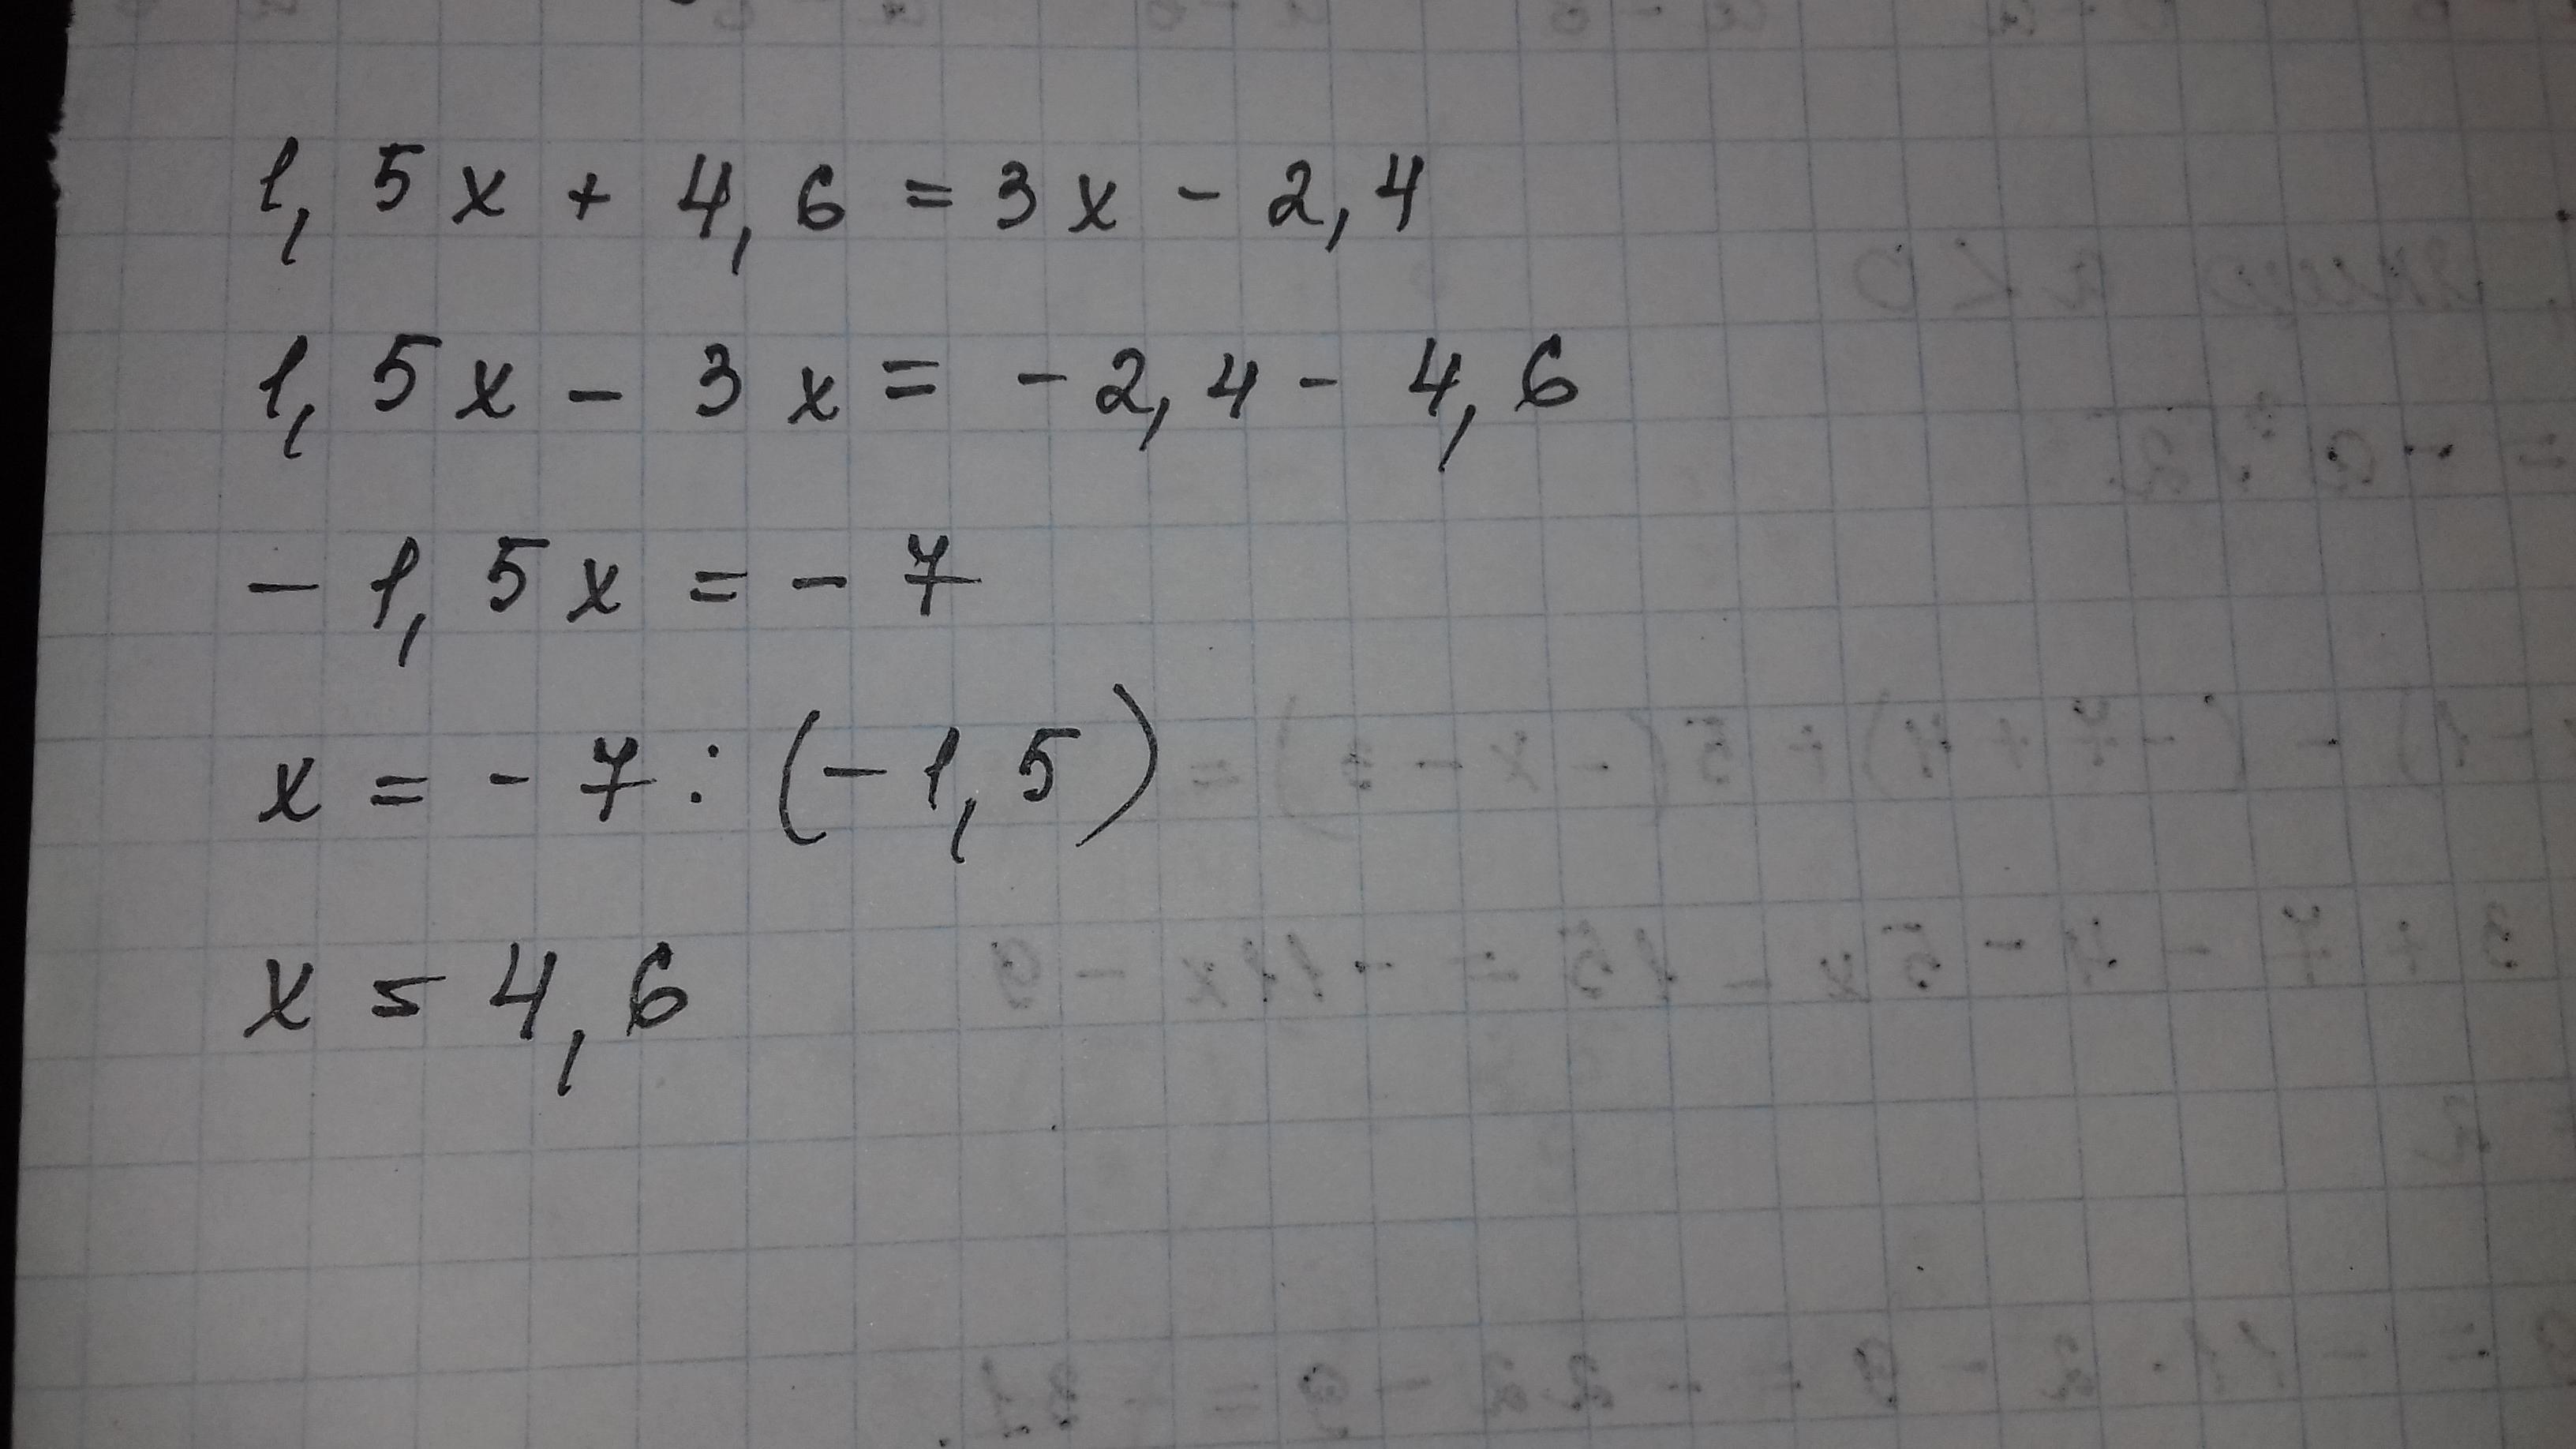 1,5x + 4,6 = 3x - 2,4
1,5x - 3x = -2,4 - 4,6
-1,5x = -7
x = -7 : (-1,5)
x = 4,6